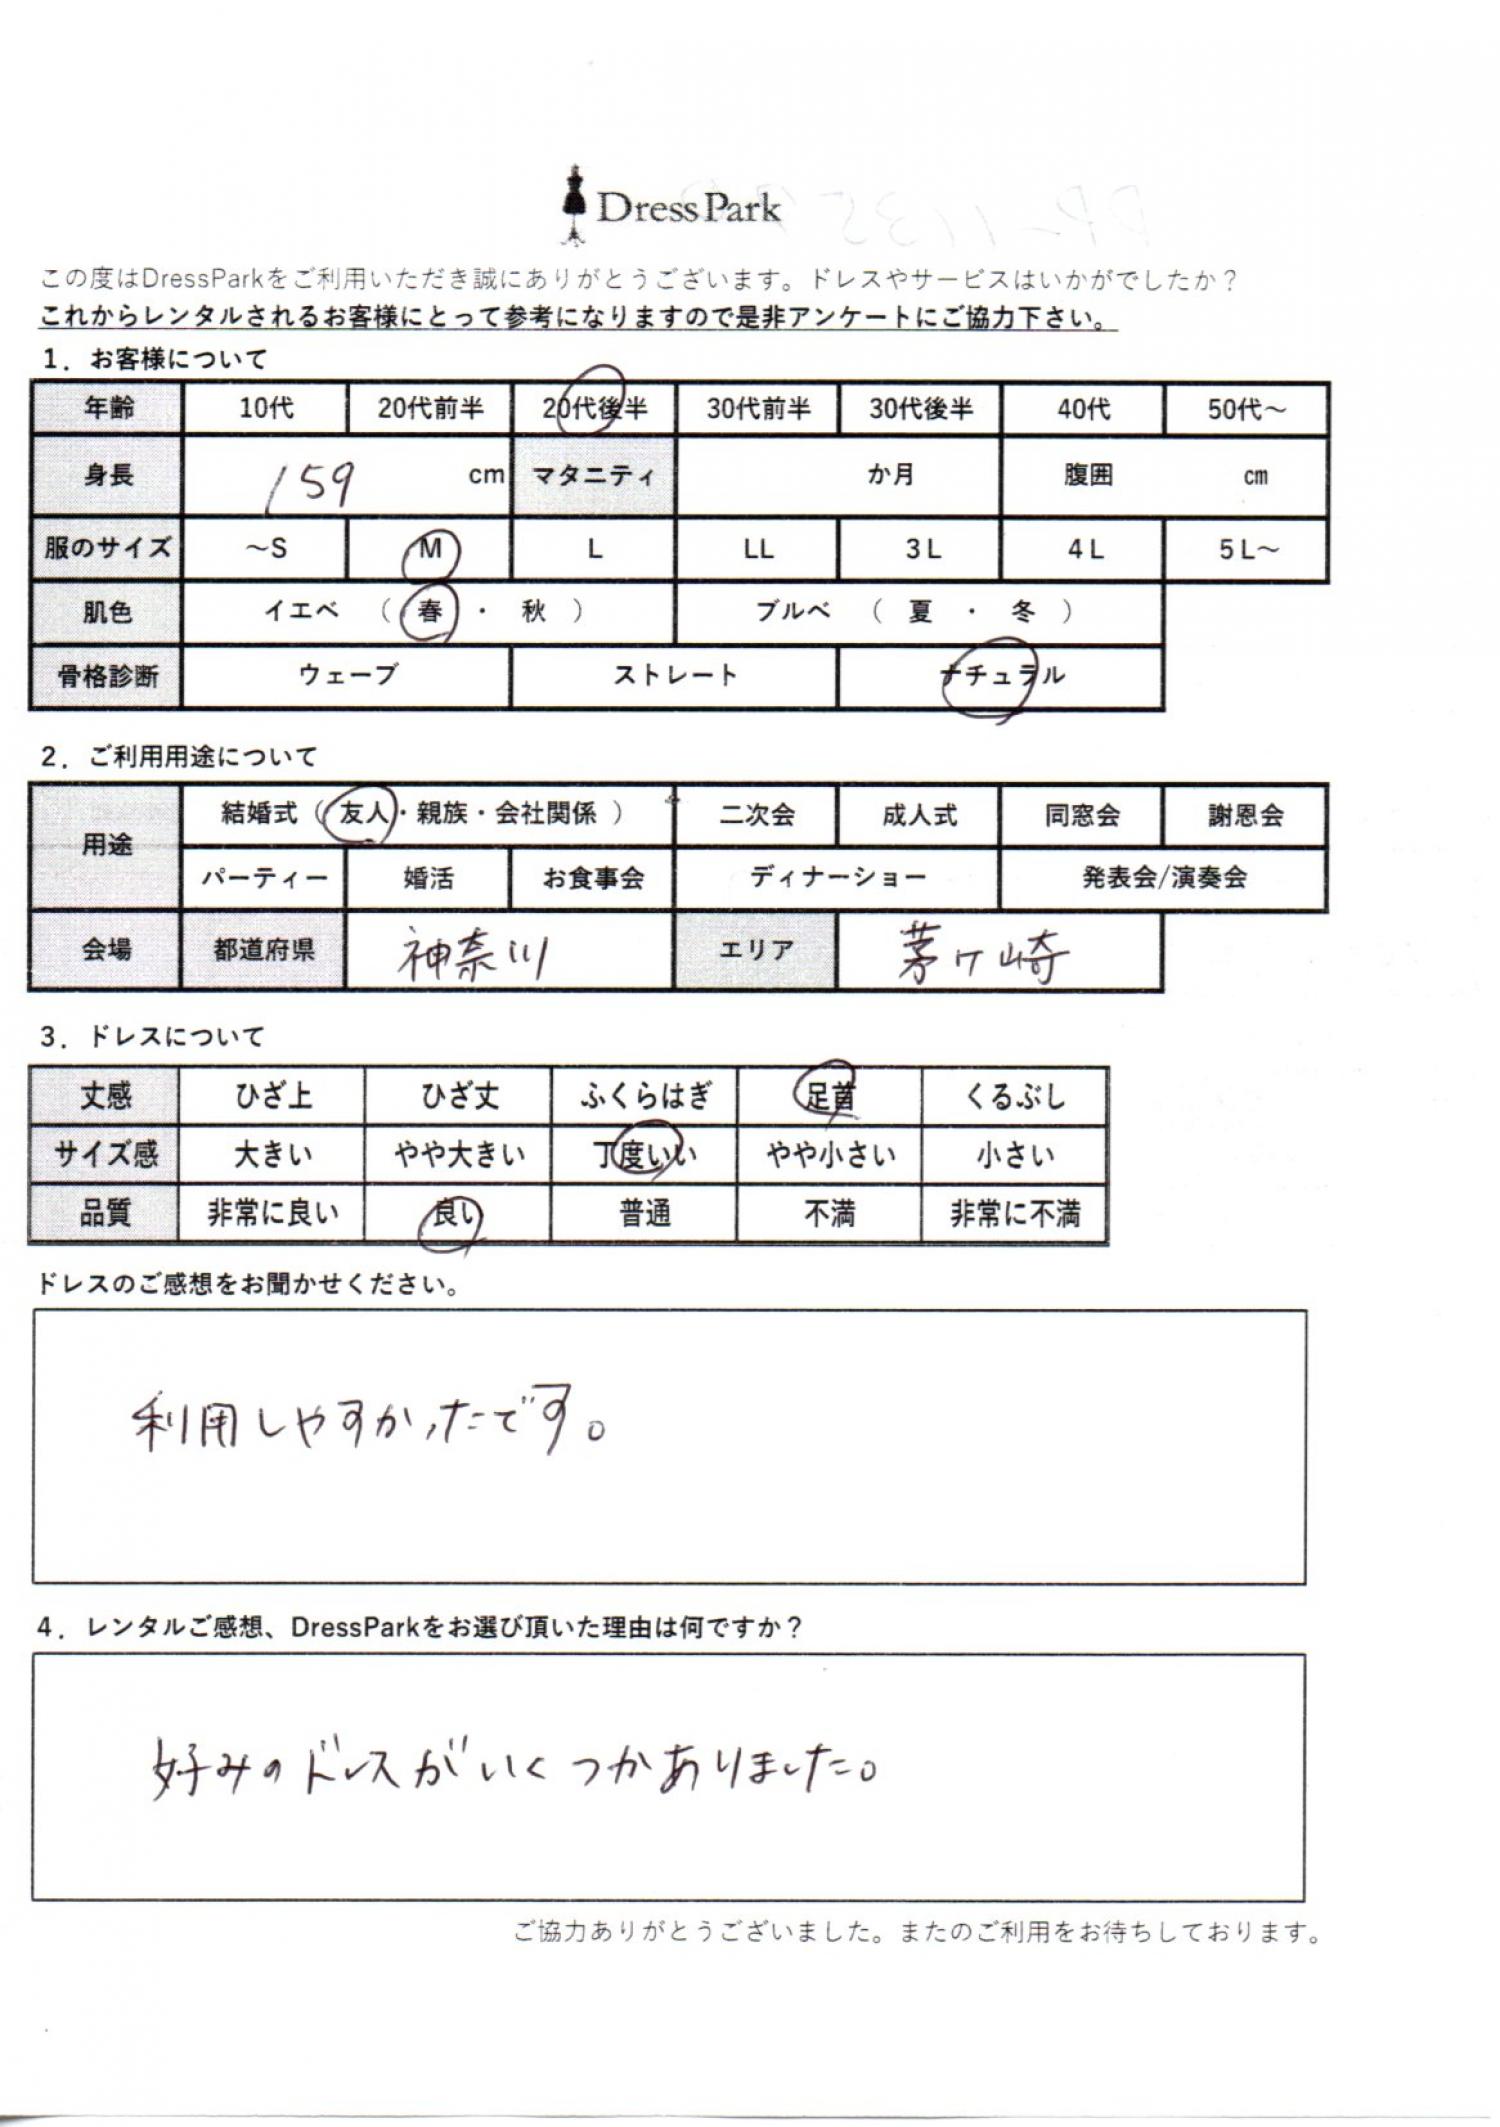 DressPark
この度はDressParkをご利用いただき誠にありがとうございます。ドレスやサービスはいかがでしたか？
これからレンタルされるお客様にとって参考になりますので是非アンケートにご協力下さい。
1．お客様について
年齢 10代 20代前半 20代後半 30代前半 30代後半 40代 50代～
身長 159 cm マタニティ か月 腹囲 cm
服のサイズ ～S M L LL 3L 4L 5L～
肌色 イエベ （ 春 ・ 秋 ） ブルベ （ 夏 ・ 冬 ）
骨格診断 ウェーブ ストレート ナチュラル
2．ご利用用途について
用途 結婚式（ 友人・親族・会社関係 ） 二次会 成人式 同窓会 謝恩会
パーティー 婚活 お食事会 ディナーショー 発表会/演奏会
会場 都道府県 神奈川 エリア 茅ヶ崎
3．ドレスについて
丈感 ひざ上 ひざ丈 ふくらはぎ 足首 くるぶし
サイズ感 大きい やや大きい 丁度いい やや小さい 小さい
品質 非常に良い 良い 普通 不満 非常に不満
ドレスのご感想をお聞かせください。
利用しやすかったです。
4．レンタルご感想、DressParkをお選び頂いた理由は何ですか？
好みのドレスがいくつかありました。
ご協力ありがとうございました。またのご利用をお待ちしております。